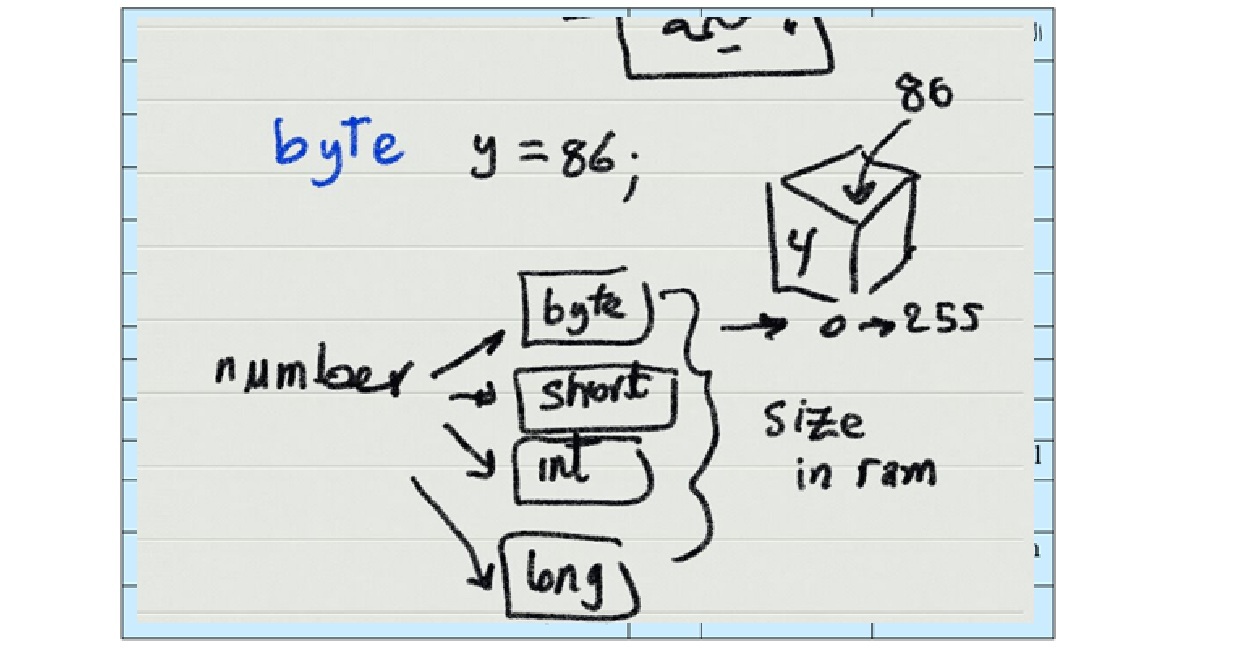 86
byte y = 86;
y
byte
→ 0 → 255
number
short
size
int
in ram
long